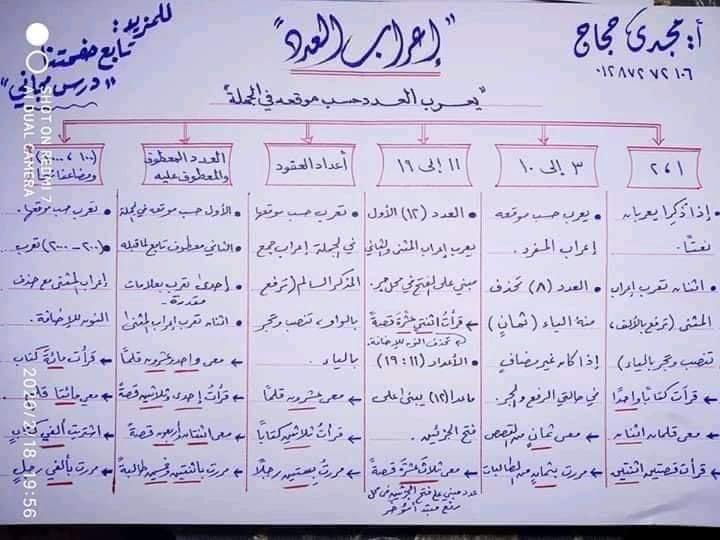 أ: مجدى حجاج
٠١٢٨٧٢٧٢١٠٦
"إعراب العدد"
للمزيد:
تابع صفحتنا
"درس مجاني"
"يعرب العدد حسب موقعه في الجملة"
١، ٢
• إذا ذكرا يعربان
نعتًا.
• اثنان تعرب إعراب
المثنى (ترفع بالألف،
تنصب وتجر بالياء)
← قرأت كتابًا واحدًا
← معى قلمان اثنان
← قرأت قصتين اثنتين
٣ إلى ١٠
• يعرب حسب موقعه
إعراب المفرد.
• العدد (٨) تحذف
منه الياء (ثمانٍ)
إذا كان غير مضاف
في حالتي الرفع والجر.
← معى ثمانٍ من القصص
← مررت بثمانٍ من الطالبات
١١ إلى ١٩
• العدد (١٢) الأول
يعرب إعراب المثنى والثاني
مبني على الفتح في محل جر.
← قرأت اثنتي عشرة قصة
تحذف النون للإضافة.
• الأعداد (١١: ١٩)
ماعدا (١٢) يبنى على
فتح الجزئين.
← معى ثلاث عشرة قصة
عدد مبني على فتح الجزئين في محل
رفع مبتدأ مؤخر
أعداد العقود
• تعرب حسب موقعها
في الجملة إعراب جمع
المذكر السالم (ترفع
بالواو، تنصب وتجر
بالياء.
← معى عشرون قلمًا
← قرأت ثلاثين كتابًا
← مررت بستين رجلًا
العدد المعطوف
والمعطوف عليه
• الأول حسب موقعه في الجملة
• الثاني معطوف تابع لما قبله
• إحدى تعرب بعلامات
مقدرة.
• اثنان تعرب إعراب المثنى
← معى واحد وعشرون قلمًا
← قرأت إحدى وثلاثين قصة
← معى اثنتان وأربعون قصة
← مررت باثنتين وخمسين طالبة
(١٠٠، ١٠٠٠)
ومضاعفاتها
• تعرب حسب موقعها.
• (٢٠٠ - ٢٠٠٠) تعرب
إعراب المثنى مع حذف
النون للإضافة.
← قرأت مائة كتاب
← معى مائتا قلم
← اشتريت ألفي كتاب
← مررت بألفي رجل
SHOT ON REDMI 7
AI DUAL CAMERA